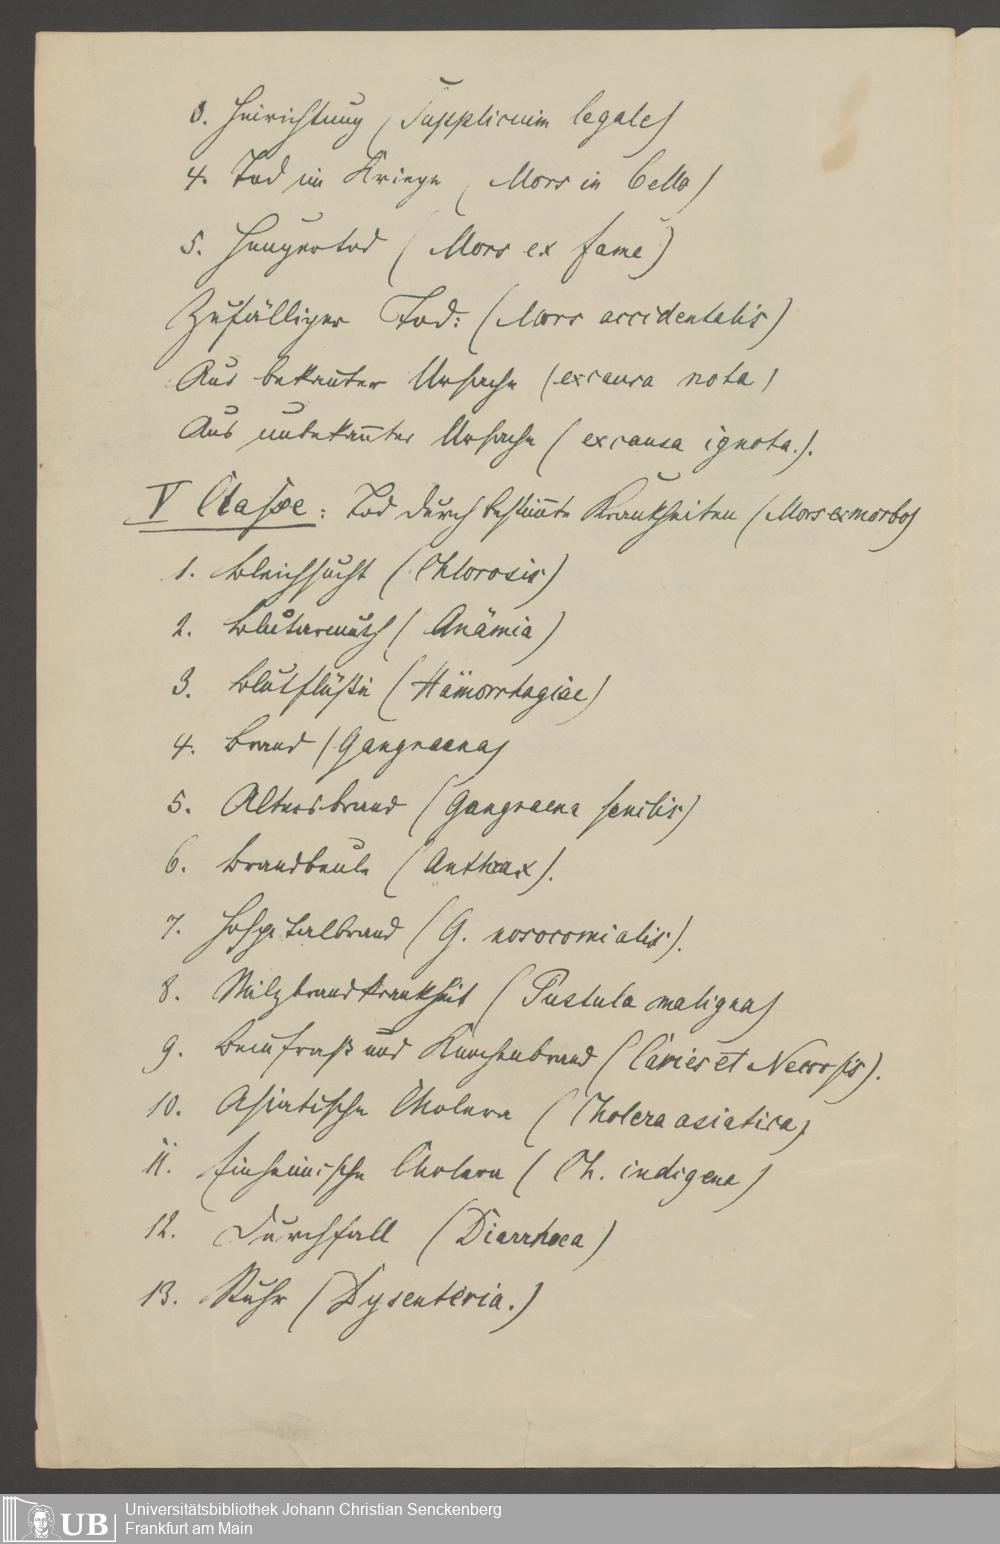 3. Hinrichtung (Supplicium legale)
4. Tod im Kriege (Mors in bello)
5. Hungertod (Mors ex fame)
Zufälliger Tod: (Mors accidentalis)
Aus bekannter Ursache (ex causa nota)
Aus unbekannter Ursache (ex causa ignota.).
V Classe: Tod durch bestimmte Krankheiten (Mors ex morbo)
1. Bleichsucht (Chlorosis)
2. Blutarmuth (Anämia)
3. Blutflüße (Hämorrhagiae)
4. Brand (Gangraena)
5. Altersbrand (Gangraena senilis)
6. Brandbeule (Anthrax).
7. Hospitalbrand (G. nosocomialis).
8. Milzbrandkrankheit (Pustula maligna)
9. Beinfraß und Knochenbrand (Caries et Necrosis).
10. Asiatische Cholera (Cholera asiatica)
11. Einheimische Cholera (Ch. indigena)
12. Durchfall (Diarrhoea)
13. Ruhr (Dysenteria.)
UB Universitätsbibliothek Johann Christian Senckenberg
Frankfurt am Main